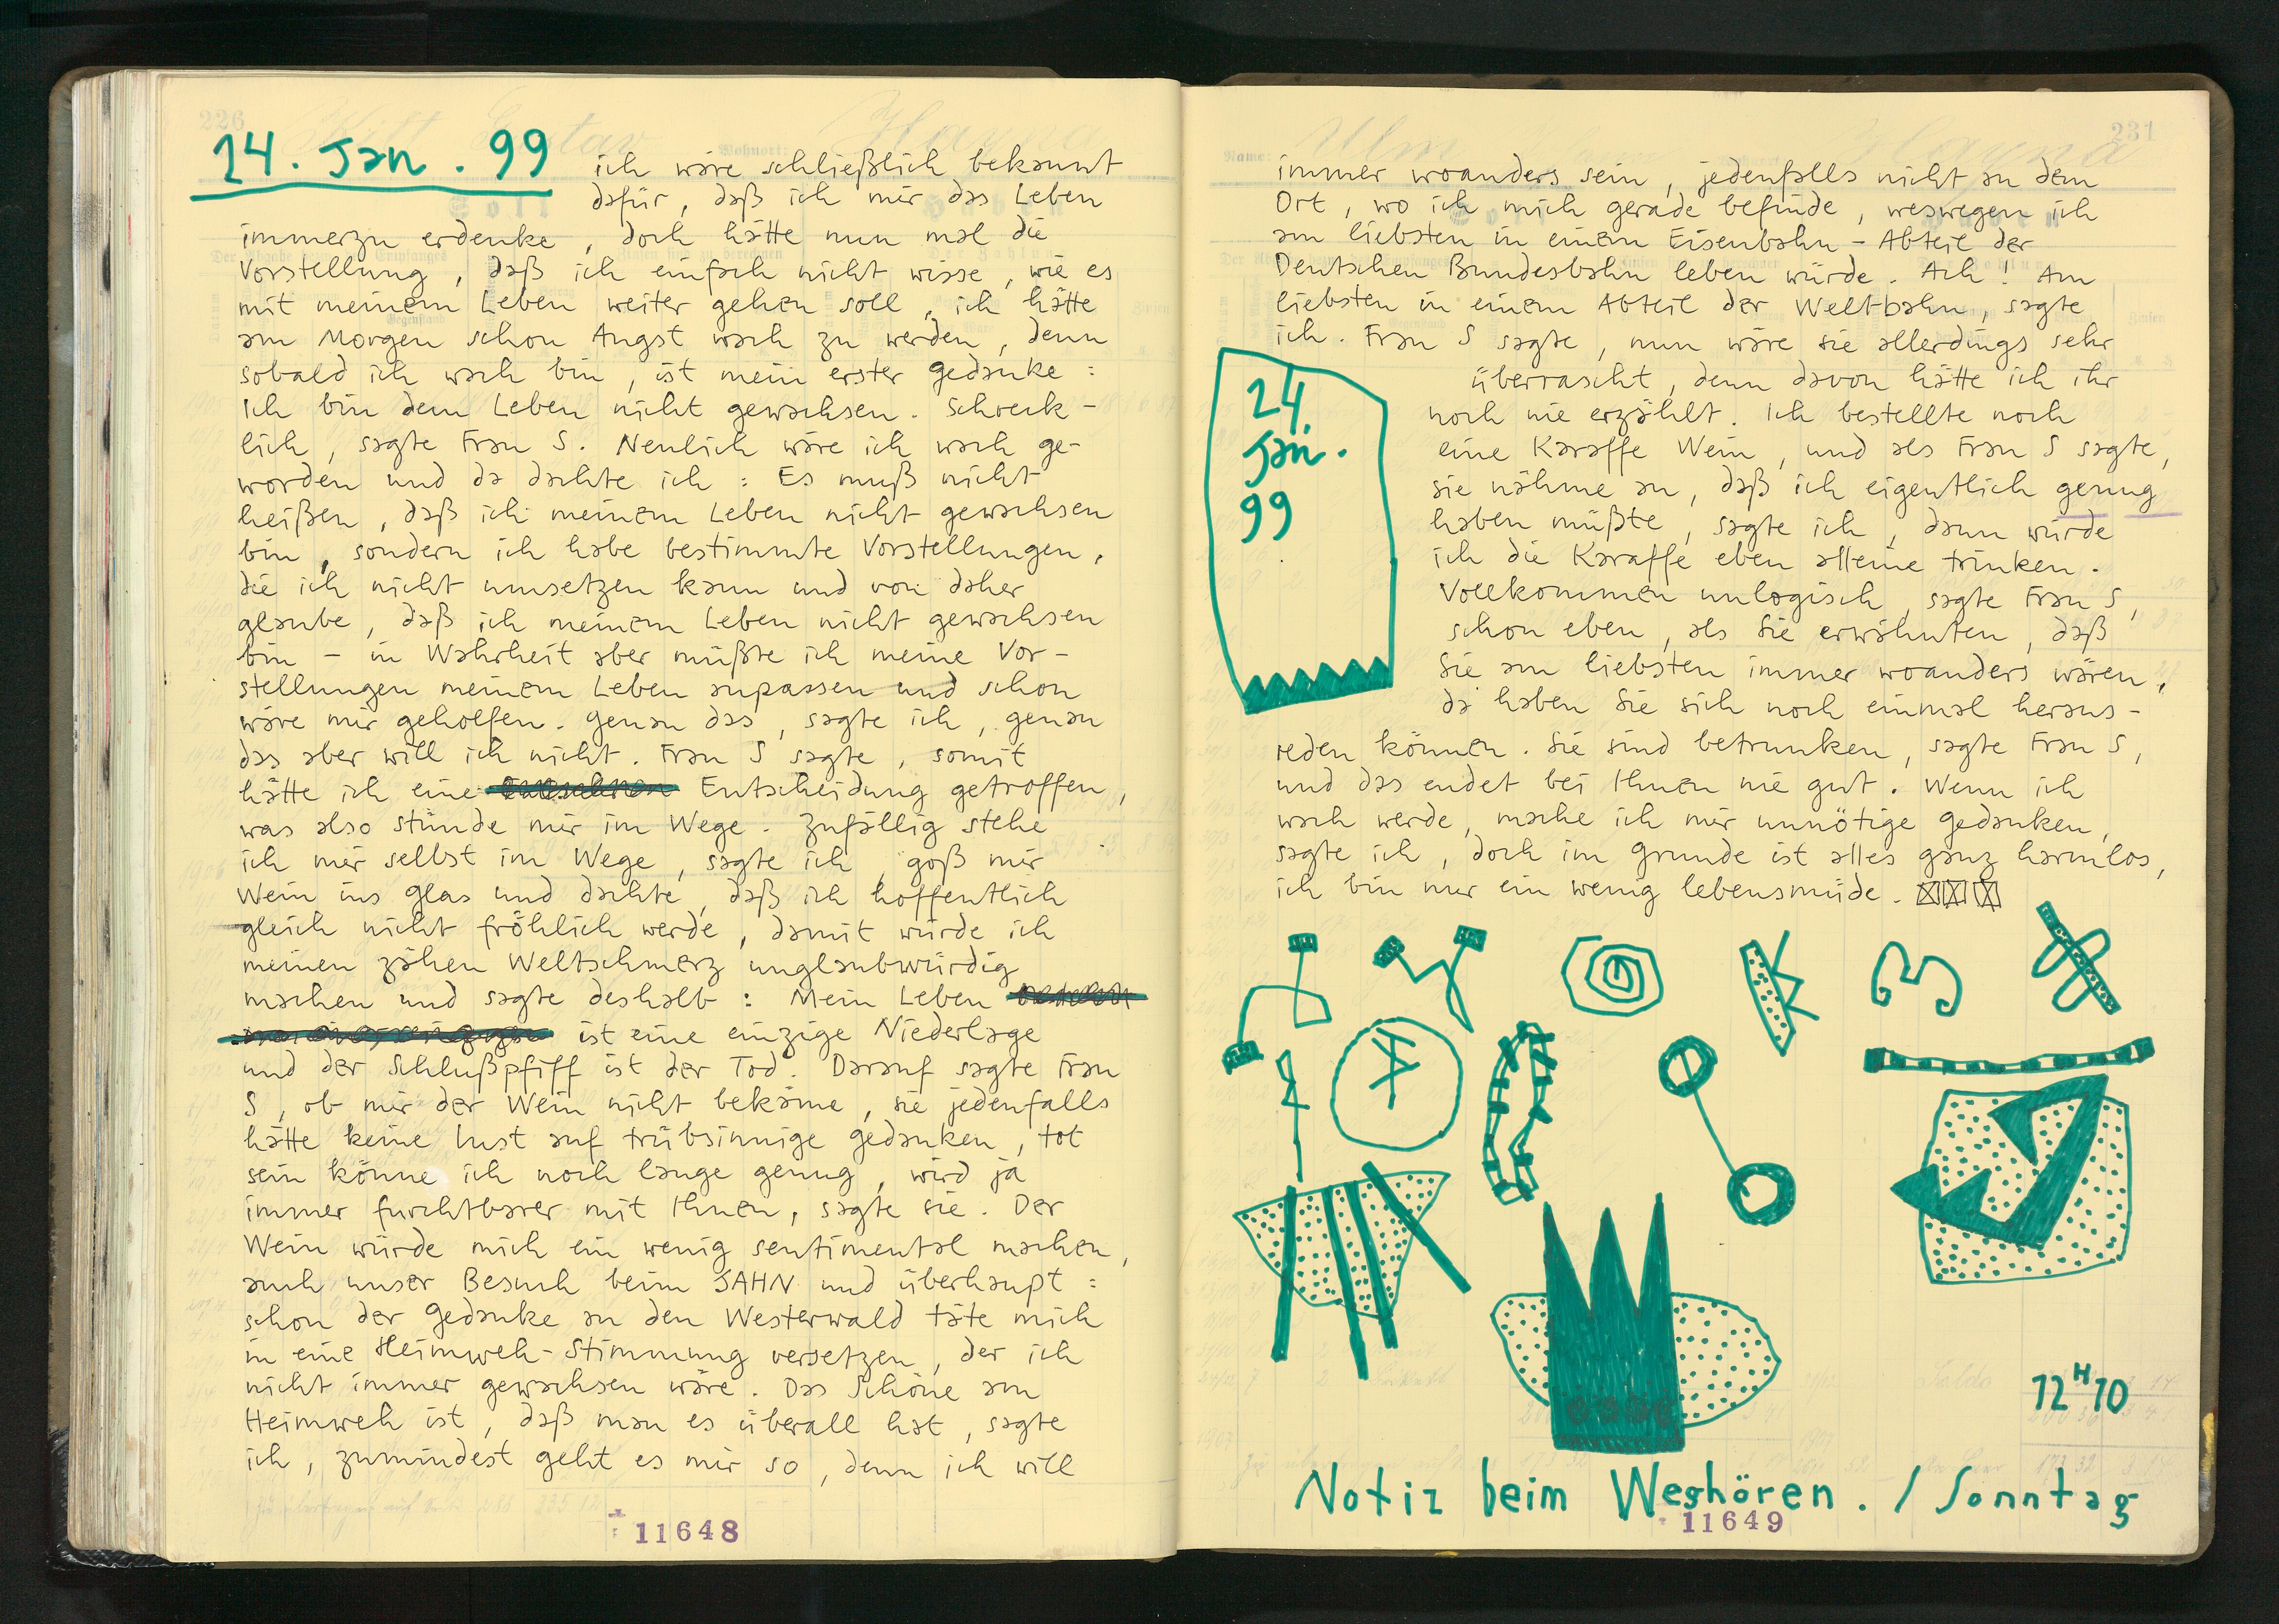 24. Jan. 99
ich wäre schließlich bekannt
dafür, daß ich mir das Leben
immerzu erdenke, doch hätte nun mal die
Vorstellung, daß ich einfach nicht wisse, wie es
mit meinem Leben weiter gehen soll, ich hätte
am Morgen schon Angst wach zu werden, denn
sobald ich wach bin, ist mein erster Gedanke:
Ich bin dem Leben nicht gewachsen. Schreck-
lich, sagte Frau S. Neulich wäre ich wach ge-
worden und da dachte ich: Es muß nicht
heißen, daß ich meinem Leben nicht gewachsen
bin, sondern ich habe bestimmte Vorstellungen,
die ich nicht umsetzen kann und von daher
glaube, daß ich meinem Leben nicht gewachsen
bin - in Wahrheit aber müßte ich meine Vor-
stellungen meinem Leben anpassen und schon
wäre mir geholfen. Genau das, sagte ich, genau
das aber will ich nicht. Frau S sagte, somit
hätte ich eine Entscheidung getroffen,
was also stünde mir im Wege. Zufällig stehe
ich mir selbst im Wege, sagte ich, goß mir
Wein ins Glas und dachte, daß ich hoffentlich
gleich nicht fröhlich werde, damit würde ich
meinen zähen Weltschmerz unglaubwürdig
machen und sagte deshalb: Mein Leben
ist eine einzige Niederlage
und der Schlußpfiff ist der Tod. Darauf sagte Frau
S, ob mir der Wein nicht bekäme, sie jedenfalls
hätte keine Lust auf trübsinnige Gedanken, tot
sein könne ich noch lange genug, wird ja
immer furchtbarer mit Ihnen, sagte sie. Der
Wein würde mich ein wenig sentimental machen,
auch unser Besuch beim SAHN und überhaupt:
schon der Gedanke an den Westerwald täte mich
in eine Heimweh-Stimmung versetzen, der ich
nicht immer gewachsen wäre. Das Schöne am
Heimweh ist, daß man es überall hat, sagte
ich, zumindest geht es mir so, denn ich will
11648
231
immer woanders sein, jedenfalls nicht an dem
Ort, wo ich mich gerade befinde, weswegen ich
am liebsten in einem Eisenbahn-Abteil der
Deutschen Bundesbahn leben würde. Ach! Am
liebsten in einem Abteil der Weltbahn, sagte
ich. Frau S sagte, nun wäre sie allerdings sehr
überrascht, denn davon hätte ich ihr
noch nie erzählt. Ich bestellte noch
eine Karaffe Wein, und als Frau S sagte,
sie nähme an, daß ich eigentlich genug
haben müßte, sagte ich, dann würde
ich die Karaffe eben alleine trinken.
Vollkommen unlogisch, sagte Frau S,
schon eben, als Sie erwähnten, daß
Sie am liebsten immer woanders wären,
da haben Sie sich noch einmal heraus-
reden können. Sie sind betrunken, sagte Frau S,
und das endet bei Ihnen nie gut. Wenn ich
wach werde, mache ich mir unnötige Gedanken,
sagte ich, doch im Grunde ist alles ganz harmlos,
ich bin nur ein wenig lebensmüde.
24.
Jan.
99
12 H 10
Notiz beim Weghören. / Sonntag
11649